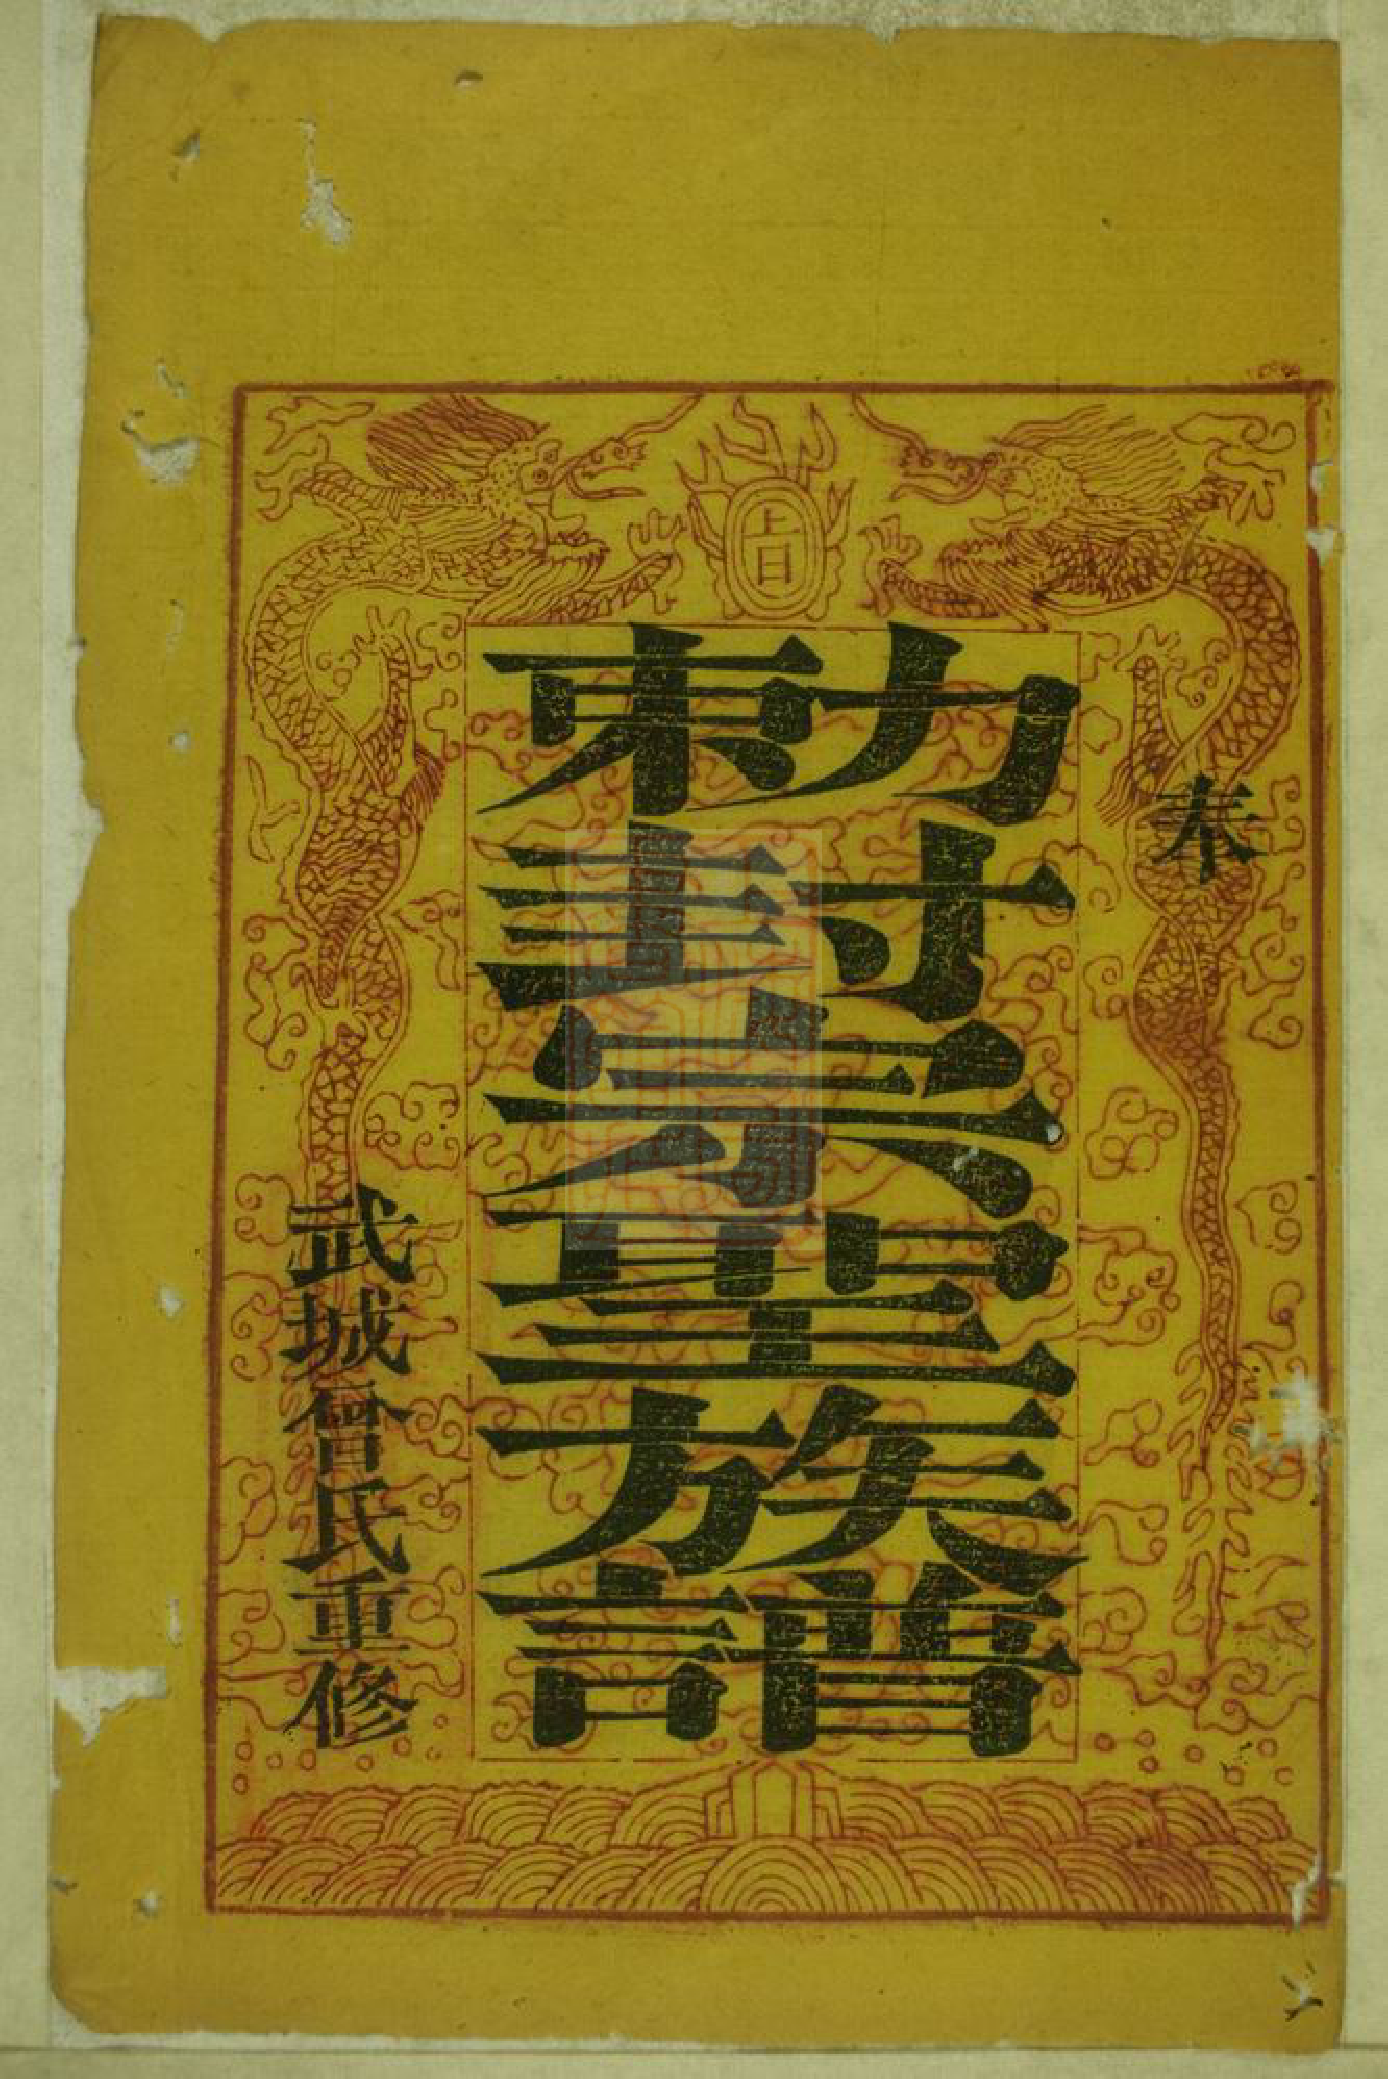 旨
奉
勅封宗聖族譜
武城曾氏重修